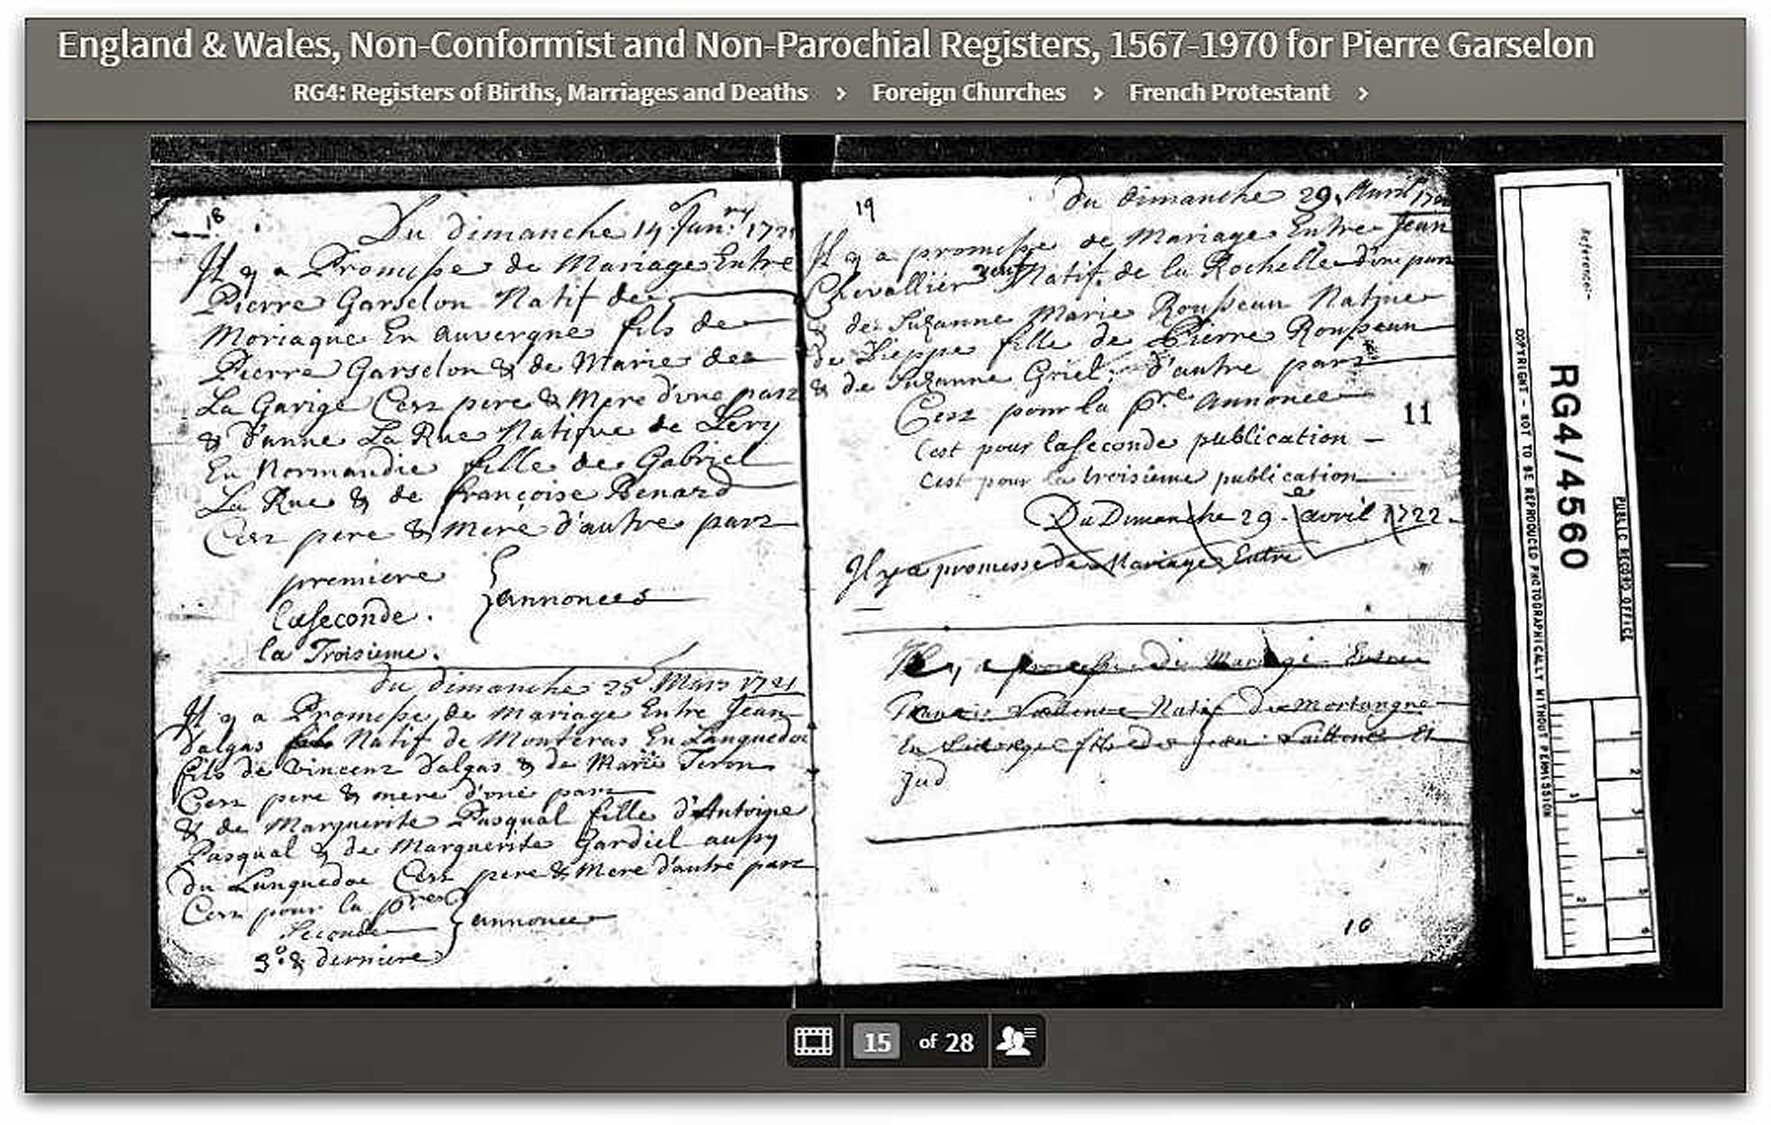 England & Wales, Non-Conformist and Non-Parochial Registers, 1567-1970 for Pierre Garselon
RG4: Registers of Births, Marriages and Deaths > Foreign Churches > French Protestant >
18
Du dimanche 14 Janry 1721
Il y a Promesse de Mariage Entre
Pierre Garselon Natif de
Moriaque En Auvergne fils de
Pierre Garselon & de Marie de
La Garige Ces pere & Mere d'une part
& d'anne La Rue Natique de Lery
En Normandie fille de Gabriel
La Rue & de françoise Benard
Ces pere & Mere d'autre part
premiere
la seconde . } annonces
la Troisieme .
du dimanche 25 Mars 1721
Il y a Promesse de Mariage Entre Jean
Dalgas Natif de Monteras En Languedoc
fils de Vincent Dalgas & de Marie
Ces pere & mere d'une part
& de Marguerite Pasqual fille d'Antoine
Pasqual & de Marguerite Gardiel aussy
du Languedoc Ces pere & Mere d'autre part
C'est pour la pre
Seconde } annonce
3e & derniere
19
du dimanche 29 Avril
Il y a promesse de Mariage Entre Jean
Chevallier veuf Natif de la Rochelle d'une part
& de Suzanne Marie Rousseau Native
de Dieppe fille de Pierre Rousseau
& de Suzanne Griel d'autre part
C'est pour la pre annonce
11
C'est pour la seconde publication
c'est pour la troisieme publication
Du Dimanche 29 avril 1722
Il y a promesse de Mariage Entre
Il y a promesse de Mariage Entre
Natif de Mortangne
En fils de Jean
Jud
10
Reference:-
RG4/4560
PUBLIC RECORD OFFICE
COPYRIGHT - NOT TO BE REPRODUCED PHOTOGRAPHICALLY WITHOUT PERMISSION
1
2
3
4
5
6
1
2
15 of 28